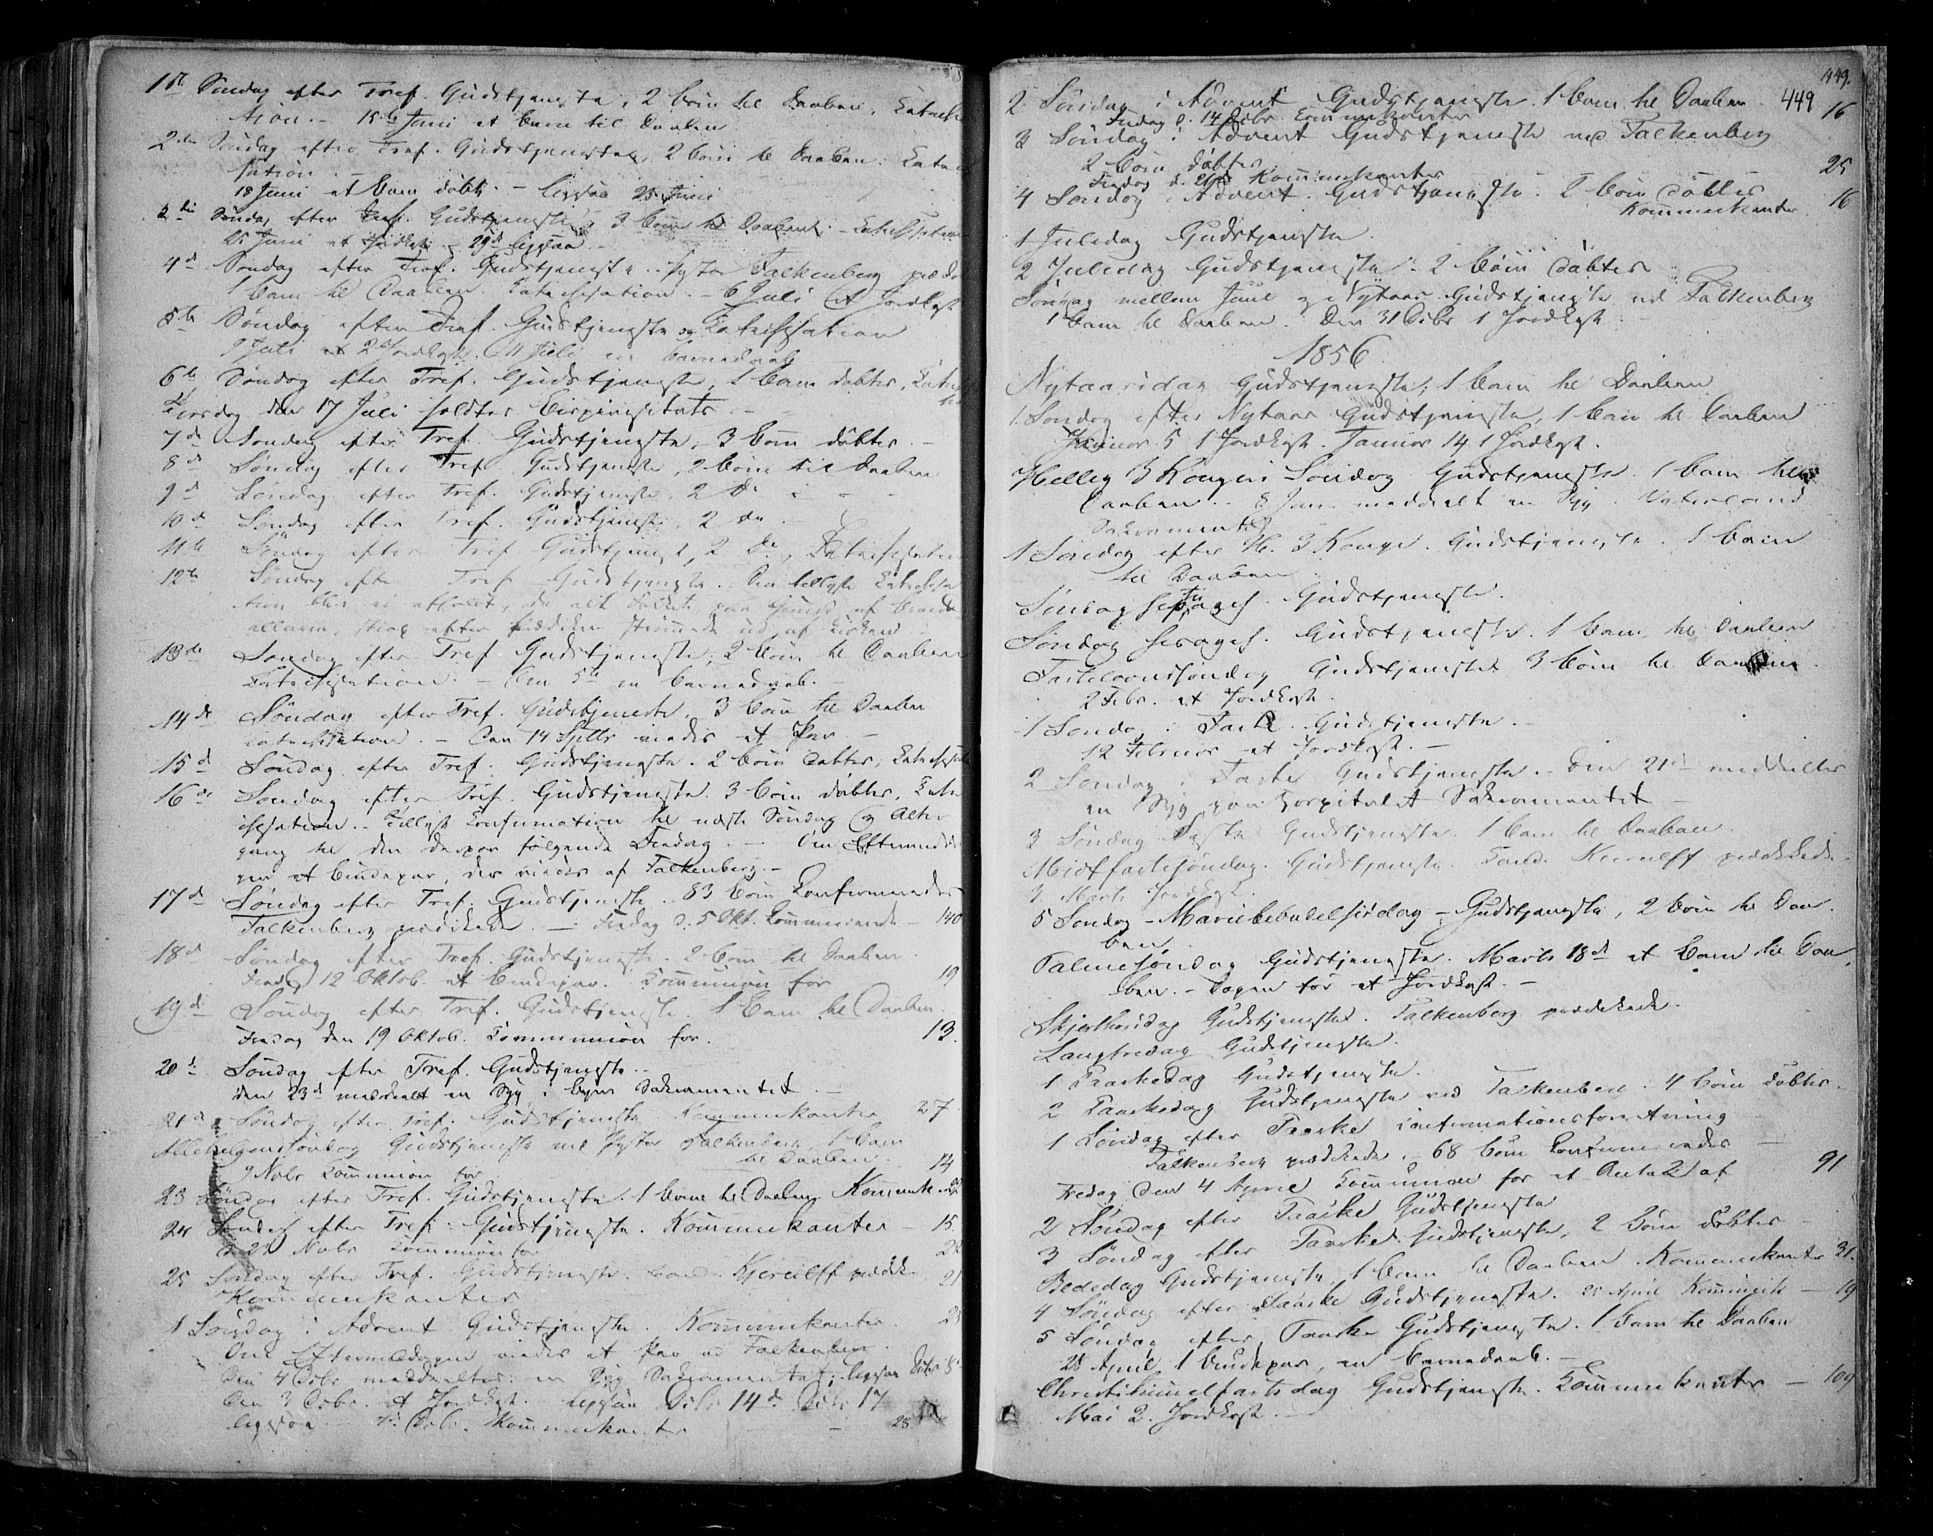 1ste Søndag efter Tref. Gudstjeneste, 2 børn til Daaben, Cateche
sation. - 15de Juni et barn til Daaben
2den Søndag efter Tref. Gudstjeneste, 2 børn til Daaben. Catec
sation. -
18 Juni et barn døbt. - ligesaa 23 Juni
3die Søndag efter Tref. Gudstjeneste, 3 børn til Daaben. - Catechisation
25 Juni et Jordkast. - 29de ligesaa. -
4de Søndag efter Tref. Gudstjeneste. Pastor Falkenberg præd.
1 barn til Daaben. Catechisation. - 6 Juli et Jordkast
5te Søndag efter Tref. Gudstjeneste og Catechisation
9 Juli 2 Jordkast. 11 Juli en barnedaab
6te Søndag efter Tref. Gudstjeneste, 1 barn døbtes, Catech
Torsdag den 17 Juli holdtes Bispevisitats. -
7de Søndag efter Tref. Gudstjeneste, 3 børn døbtes. -
8de Søndag efter Tref. Gudstjeneste, 2 børn til Daaben
9de Søndag efter Tref. Gudstjeneste, 2 do
10de Søndag efter Tref. Gudstjeneste, 2 do
11te Søndag efter Tref. Gudstjeneste, 2 do, Catechisation
12te Søndag efter Tref. Gudstjeneste. Den tillyste Catechisa
tion blev ei afholdt, da alt Folket paa Grund af Brand
allarm, strax efter Prædiken strømmede ud af Kirken
13de Søndag efter Tref. Gudstjeneste, 2 børn til Daaben
Catechisation. - Den 5te en barnedaab. -
14de Søndag efter Tref. Gudstjeneste, 3 børn til Daaben
Catechisation. - Den 14 Septbr viedes et Par. -
15de Søndag efter Tref. Gudstjeneste. 2 børn døbtes, Catechisat
16de Søndag efter Tref. Gudstjeneste. 3 børn døbtes, Cate
chisation. Tillyst Confirmation til næste Søndag og Alter
gang til den derpaa følgende Fredag. - Om Eftermidda
gen et Brudepar, der viedes af Falkenberg. -
17de Søndag efter Tref. Gudstjeneste. 83 børn Confirmerades
Falkenberg prædikede. - Fredag d. 5 Okt. Communicerede - 140
18de Søndag efter Tref. Gudstjeneste. 2 børn til Daaben.
Fredag 12 Oktob. et Brudepar. Communion for 19
19de Søndag efter Tref. Gudstjeneste. 1 barn til Daaben
Fredag den 19 Oktob. Communion for. 13.
20de Søndag efter Tref. Gudstjeneste. -
den 23de meddeelt en Syg i Byen Sakramentet. -
21de Søndag efter Tref. Gudstjeneste Kommunikanter 27
Allehelgenssøndag Gudstjeneste ved Pastor Falkenberg 1 barn
til Daaben.
9 Novbr Communion for 14
23 Søndag efter Tref. Gudstjeneste. 1 barn til Daaben, Kommunik
24 Søndag efter Tref. Gudstjeneste. Kommunikanter - 15
Novbr Communion for
25 Søndag efter Tref. Gudstjeneste. Cand. Kjerulff prædik.
Kommunikanter
1 Søndag i Advent Gudstjeneste. Kommunikanter
Om Eftermiddagen viedes et Par ved Falkenberg.
Den 4 Decbr meddeeltes en Syg Sakramentet, ligesaa Decbr 8
Den 3 Decbr et Jordkast. - ligesaa Decbr 14de Decbr 17
ligesaa - Decbr. Kommunikanter - 28
449.
449
2 Søndag i Advent Gudstjeneste. 1 barn til Daaben 16
Fredag d. 14 Decbr Communikanter
3 Søndag i Advent Gudstjeneste ved Falkenberg
2 børn døbtes 25
Fredag d. 21de Kommunikanter
4 Søndag i Advent. Gudstjeneste. 2 børn døbtes
Kommunikanter 16
1 Juledag Gudstjeneste
2 Juledag Gudstjeneste. 2 børn døbtes
Søndag mellem Juul og Nytaar Gudstjeneste ved Falkenberg
1 barn til Daaben. Den 31 Decbr 1 Jordkast.
1856
Nytaarsdag Gudstjeneste, 1 barn til Daaben
1 Søndag efter Nytaar Gudstjeneste, 1 barn til Daaben
Januar 5 1 Jordkast. Januar 14 1 Jordkast.
Hellig 3 Kongers Søndag Gudstjeneste 1 barn til
Daaben. - 8 Jan. meddeelt en Syg i Vaterland
Sakramentet
1 Søndag efter H. 3 Konge. Gudstjeneste. 1 barn
til Daaben.
Søndag Septuages. Gudstjeneste.
Søndag Sexages. Gudstjeneste. 1 barn til Daaben
Fastelavnssøndag Gudstjeneste 3 børn til Daaben.
2 Febr. et Jordkast.
1 Søndag i Faste. Gudstjeneste. -
12 Februar et Jordkast. -
2 Søndag i Faste Gudstjeneste. - Den 21de meddeeltes
en Syg paa Hospitalet Sakramentet -
3 Søndag Faste Gudstjeneste. 1 barn til Daaben.
Midfastesøndag. Gudstjeneste. Cand. Kjerulff prædikede.
3 Marts Jordkast.
5 Søndag - Mariebebudelsesdag - Gudstjeneste, 2 børn til Daa
ben
Palmesøndag Gudstjeneste. Marts 18de et barn til Daa
ben. - Dagen før et Jordkast. -
Skjærthorsdag Gudstjeneste. Falkenberg prædikede.
Langfredag Gudstjeneste.
1 Paaskedag Gudstjeneste.
2 Paaskedag Gudstjeneste ved Falkenberg. 4 børn døbtes.
1 Søndag efter Paaske Confirmationsforretning
Falkenberg prædikede. - 68 børn Confirmerades -
Fredag den 4 April Communion for et Antal af 91
2 Søndag efter Paaske Gudstjeneste
3 Søndag efter Paaske Gudstjeneste, 2 børn døbtes -
Bededag Gudstjeneste, 1 barn til Daaben. Kommunikanter 31.
4 Søndag efter Paaske Gudstjeneste. 25 April Kommunik - 19
5 Søndag efter Paaske Gudstjeneste. 1 barn til Daaben
28 April 1 Brudepar, en barnedaab. -
Christi himmelfartsdag Gudstjeneste. Communikanter - 109
Mai 2. Jordkast. -